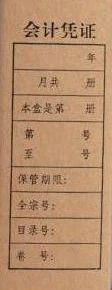 会计凭证
年
月共 册
本盒是第 册
第 号
至 号
保管期限：
全宗号：
目录号：
卷 号：